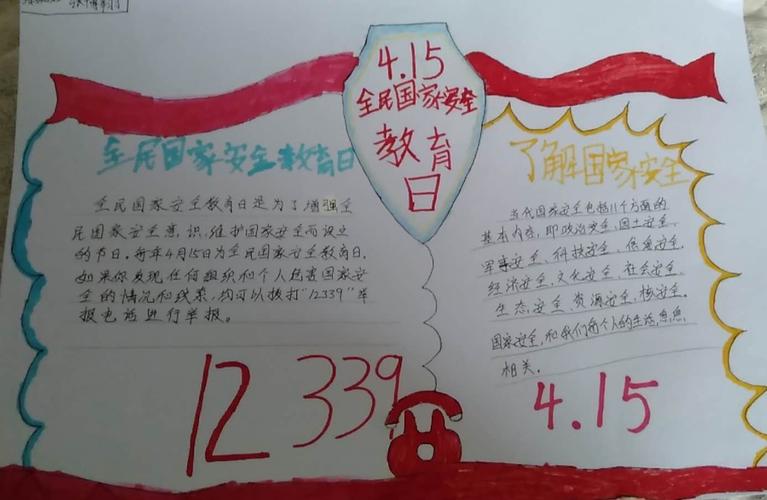 4.15
全民国家安全
教育
日
全民国家安全教育日
全民国家安全教育日是为了增强全
民国家安全意识,维护国家安全而设立
的节日。每年4月15日为全民国家安全教育日。
如果你发现任何组织和个人危害国家安
全的情况和线索,均可以拨打"12339"举
报电话进行举报。
12339
了解国家安全
当代国家安全包括11个方面的
基本内容,即政治安全、国土安全、
军事安全、科技安全、信息安全、
经济安全、文化安全、社会安全、
生态安全、资源安全、核安全。
国家安全,和我们每个人的生活息息
相关。
4.15